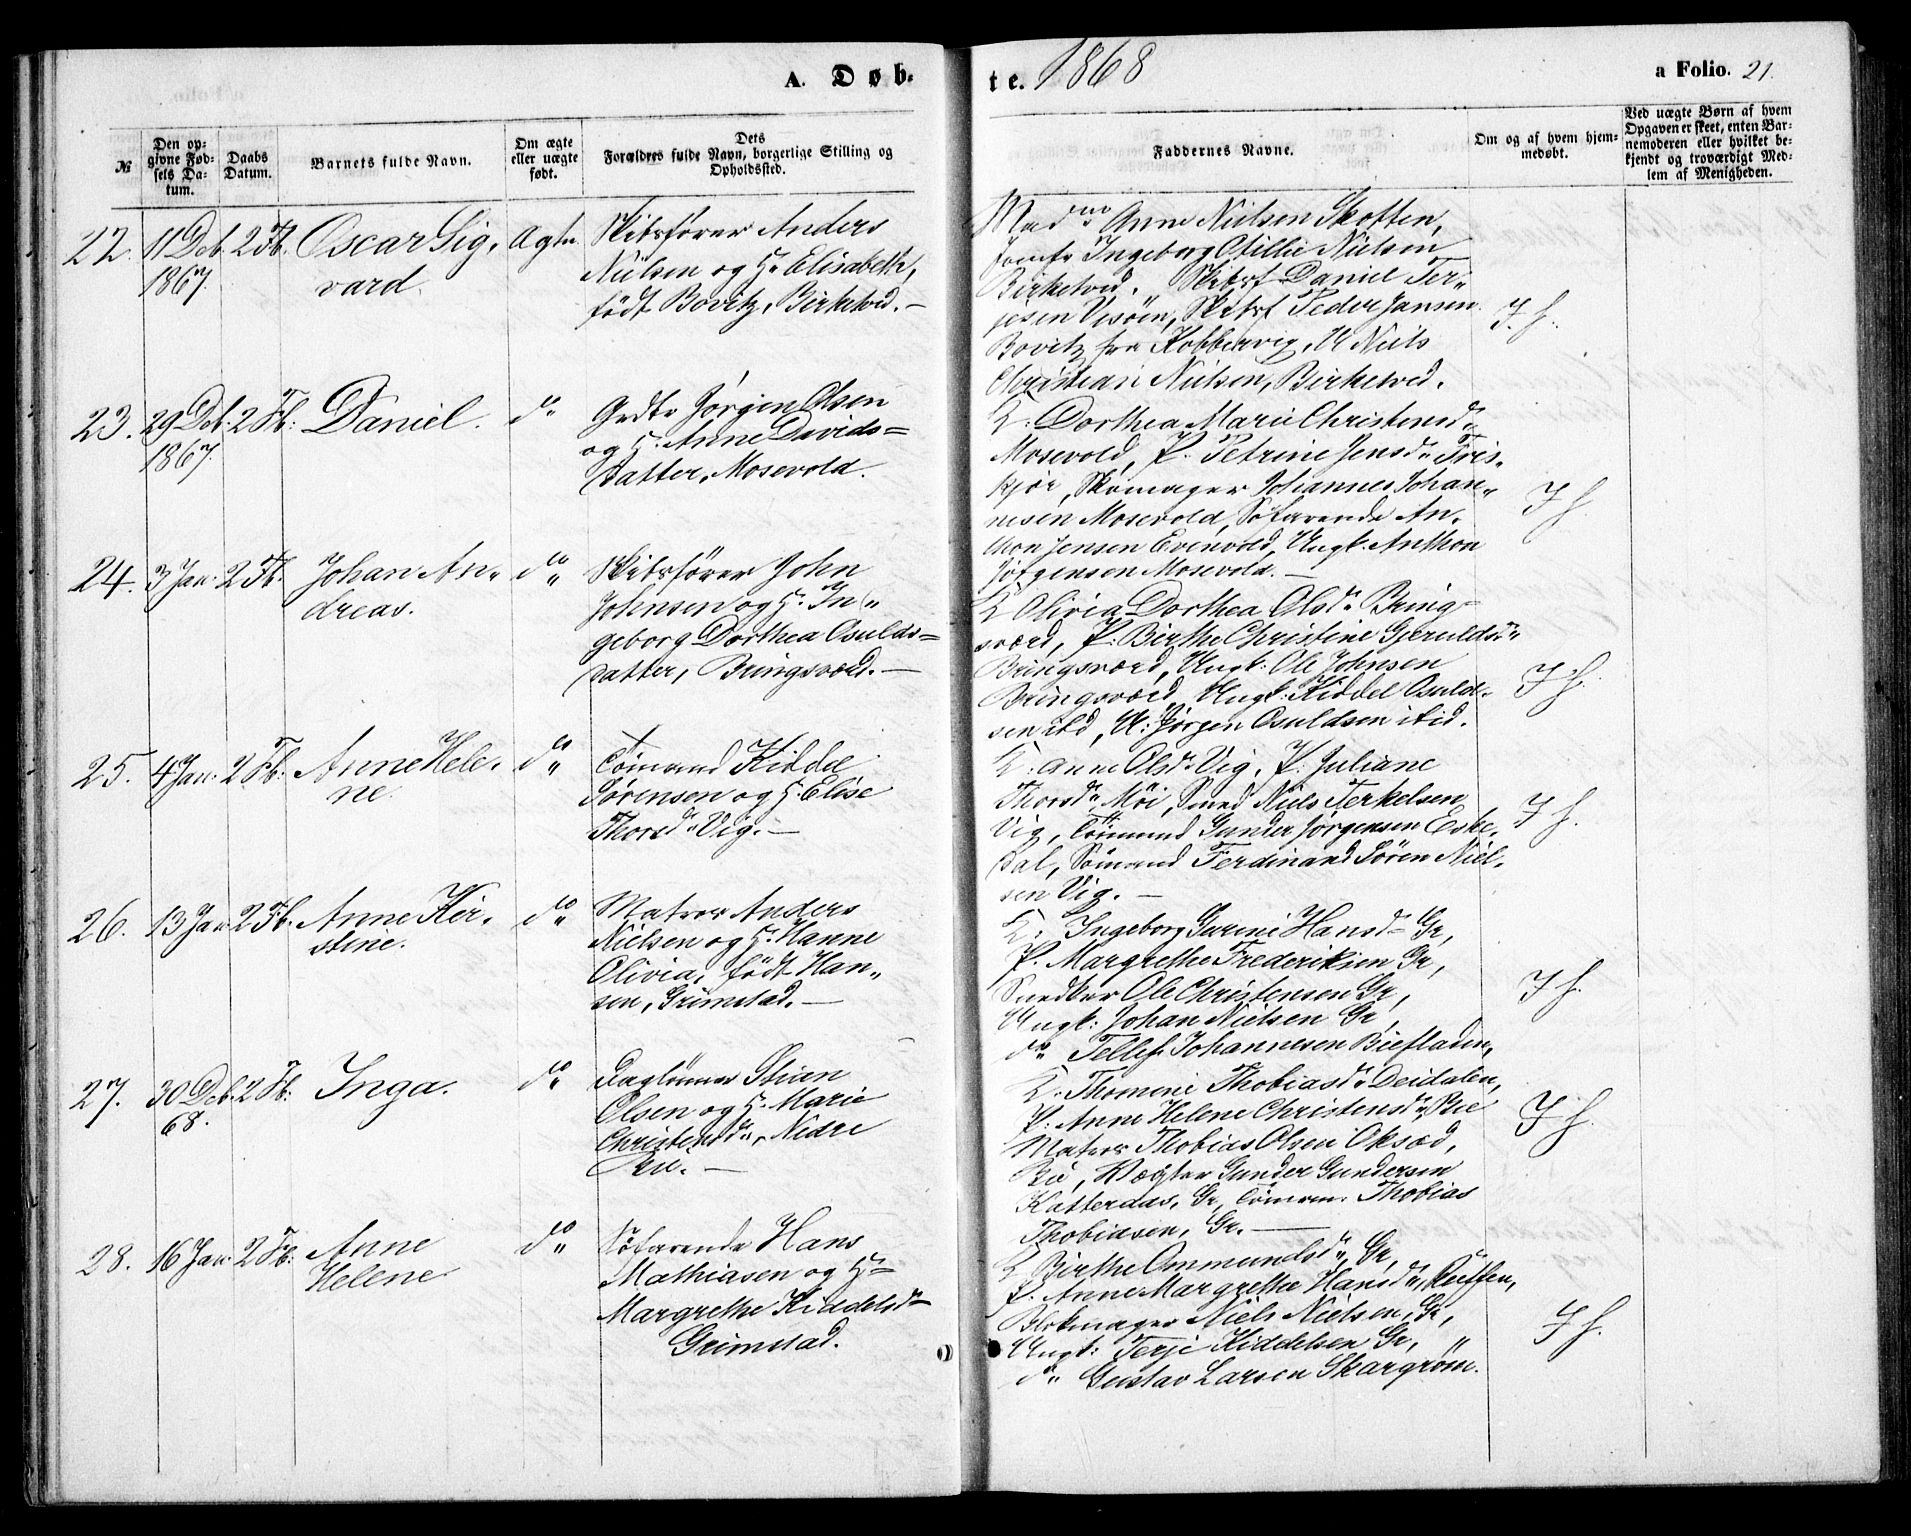 A. Døb-
te. 1868
a Folio. 21.
№
Den op-
givne Fød-
sels Da-
tum.
Daabs
Datum.
Barnets fulde Navn.
Om ægte
eller uægte
født.
Dets
Forældres fulde Navn, borgerlige Stilling og
Opholdssted.
Faddernes Navne.
Om og af hvem hjem-
medøbt.
Ved uægte Børn af hvem
Opgaven er skeet, enten Bar-
nemoderen eller hvilket be-
kjendt og troværdigt Med-
lem af Menigheden.
22. 11 Deb. 2 Fb. Oscar Sig, Ægte.
1867. vard.
Skibsfører Anders
Nielsen og H. Elisabeth,
født Bovitz, Birketved.
Madm Anne Nielsen Skotten,
Jomfr Ingeborg Otillie Nielsen
Birketved. Skibsf Daniel Ter-
jesen Vesøen, Skibsf Peder Jansen
Bovitz fra Kobbervig, U Niels
Christian Nielsen, Birketved.
J. h.
23. 29 Deb. 2 Fb. Daniel. do
1867.
Grdbr Jørgen Olsen
og H. Anne Davids-
datter, Mosevold.
K. Dorthea Marie Christensd.
Mosevold, P. Petrine Jensd. Fris-
kjær, Skomager Johannes Johan-
nesen Mosevold, Søfarende An-
thon Jensen Evenvold, Ungk. Anthon
Jørgensen Mosevold.
J. h.
24. 3 Jan. 2 Fb. Johan An- do
dreas.
Skibsfører John
Johnsen og H. In-
geborg Dorthea Osulds-
datter, Bringsværd.
K Olivia Dorthea Olsd. Bring-
sværd, P. Birthe Christine Gjeruldsd.
Bringsværd, Ungk. Ole Johnsen
Bringsværd, Ungk. Kiddel Osuld-
sen ibd, U. Jørgen Osuldsen ibid.
J. h.
25. 4 Jan. 2 Fb. Anne Hele- do
ne.
Tømmand Kiddel
Sørensen og H. Elise
Thorsd. Vig.
K. Anne Olsd. Vig, P. Juliane
Thorsd. Møi, Smed Niels Terkelsen
Vig, Tømmand Gunder Jørgensen Eske-
dal, Sømand Ferdinand Søren Niel-
sen Vig.
J. h.
26. 13 Jan 2 Fb. Anne Kir- do
stine.
Matros Anders
Nielsen og H. Hanne
Olivia, født Han-
sen, Grimstad.
K. Ingeborg Gurine Hansd. Gr,
P. Margrethe Frederiksen Gr,
Snedker Ole Christensen Gr,
Ungk. Johan Nielsen Gr,
do Tellef Johannesen Biefladen,
J. h.
27. 30 Deb. 2 Fb. Inga. do
68.
Daglønner Stian
Olsen og H. Marie
Christensd., Nedre
Bie.
K. Thomine Thobiasd. Deidalen,
P. Anne Helene Christensd. Bie
Matros Thobias Olsen
Bie, Vægter Gunder Gundersen
Gr, Tømm. Thobias
Thobiasen, Gr.
J. h.
28. 16 Jan. 2 Fb. Anne do
Helene
Søfarende Hans
Mathiasen og H.
Margrethe Kiddelsd.
Grimstad.
K Birthe Ommundsd. Gr,
P. Anne Margrethe Hansd.
Blokmager Niels Nielsen, Gr,
Ungk. Terje Kiddelsen Gr,
do Gustav Larsen
J. h.